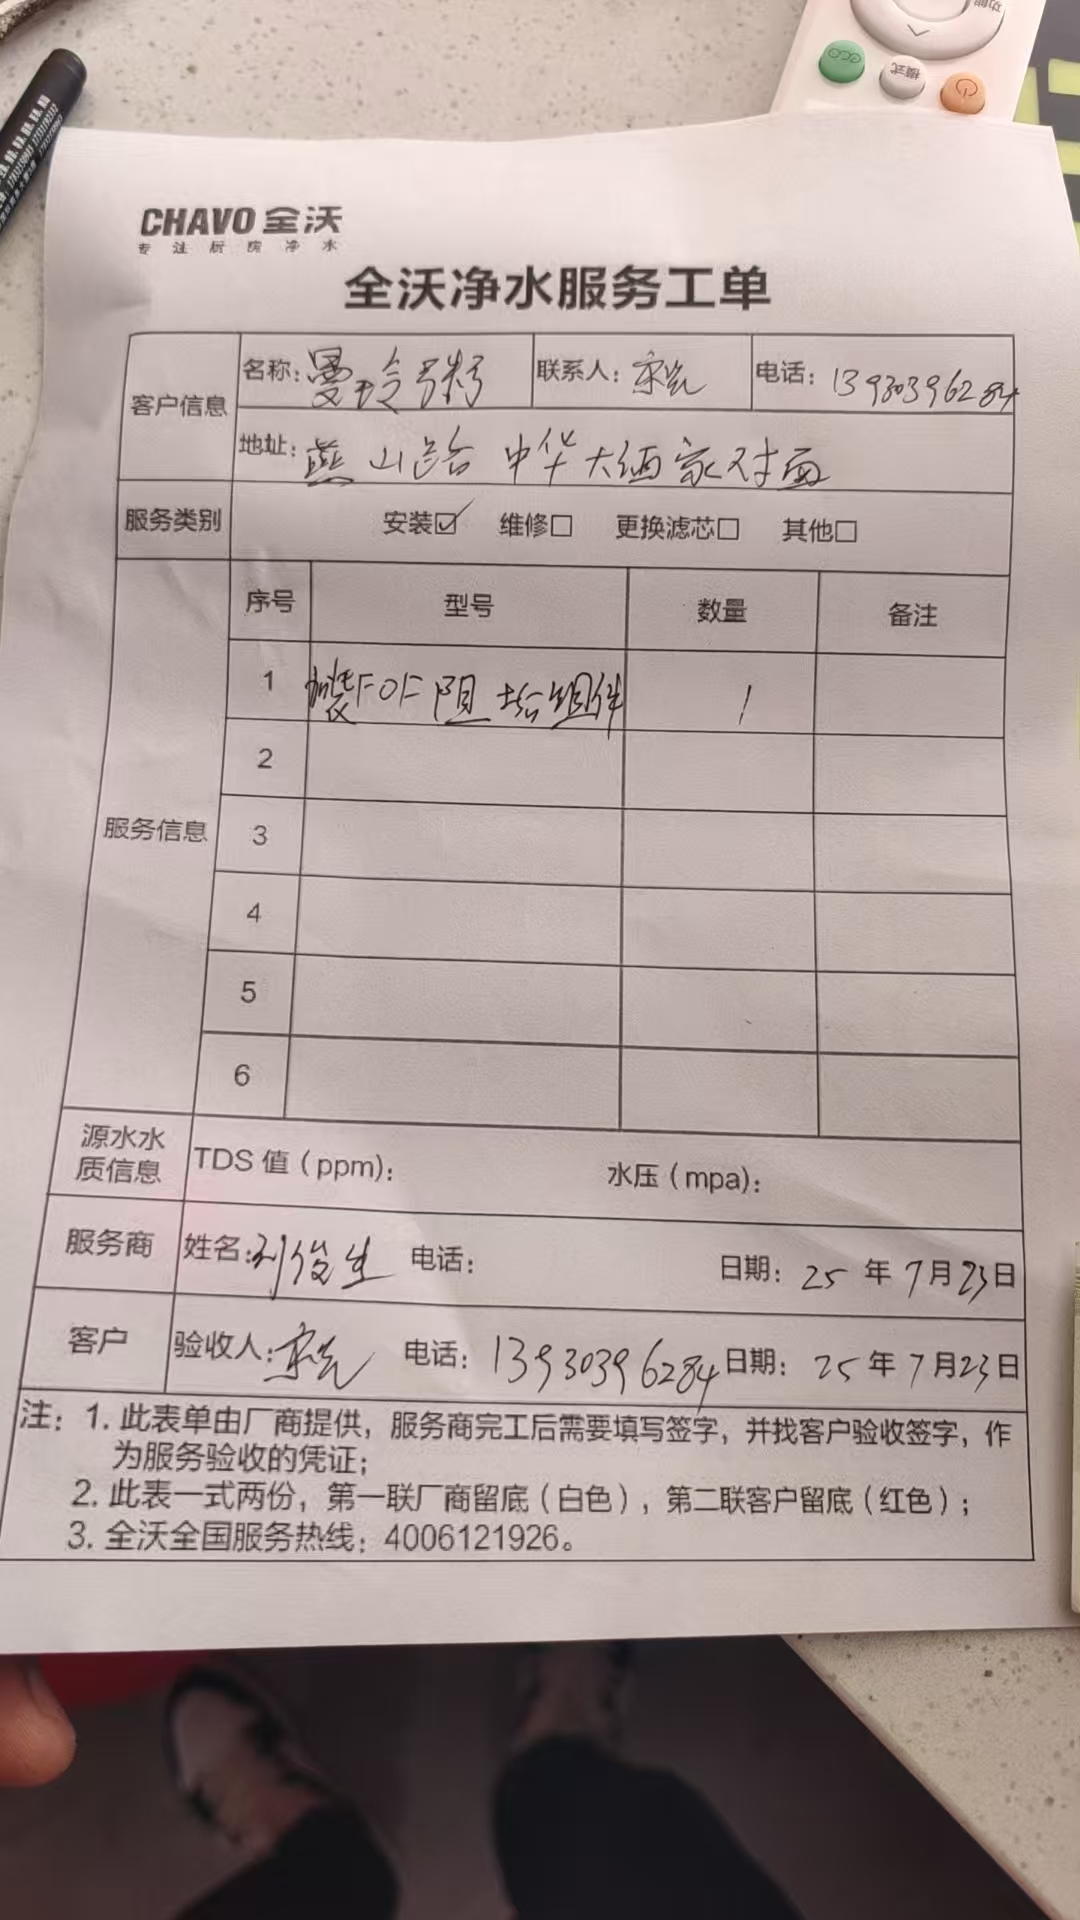 功能
ECO
模式
CHAVO 全沃
专注厨房净水
全沃净水服务工单
客户信息
名称：曼玲粥 联系人：宋 电话：13930396284
地址：燕山路 中华大酒家对面
服务类别 安装☑ 维修□ 更换滤芯□ 其他□
服务信息
序号 型号 数量 备注
1 加装FOF阻垢组件 1
2
3
4
5
6
源水水质信息 TDS 值（ppm）： 水压（mpa）：
服务商 姓名：刘俊生 电话： 日期：25年7月23日
客户 验收人：宋 电话：13930396284 日期：25年7月23日
注：1. 此表单由厂商提供，服务商完工后需要填写签字，并找客户验收签字，作
为服务验收的凭证；
2. 此表一式两份，第一联厂商留底（白色），第二联客户留底（红色）；
3. 全沃全国服务热线：4006121926。